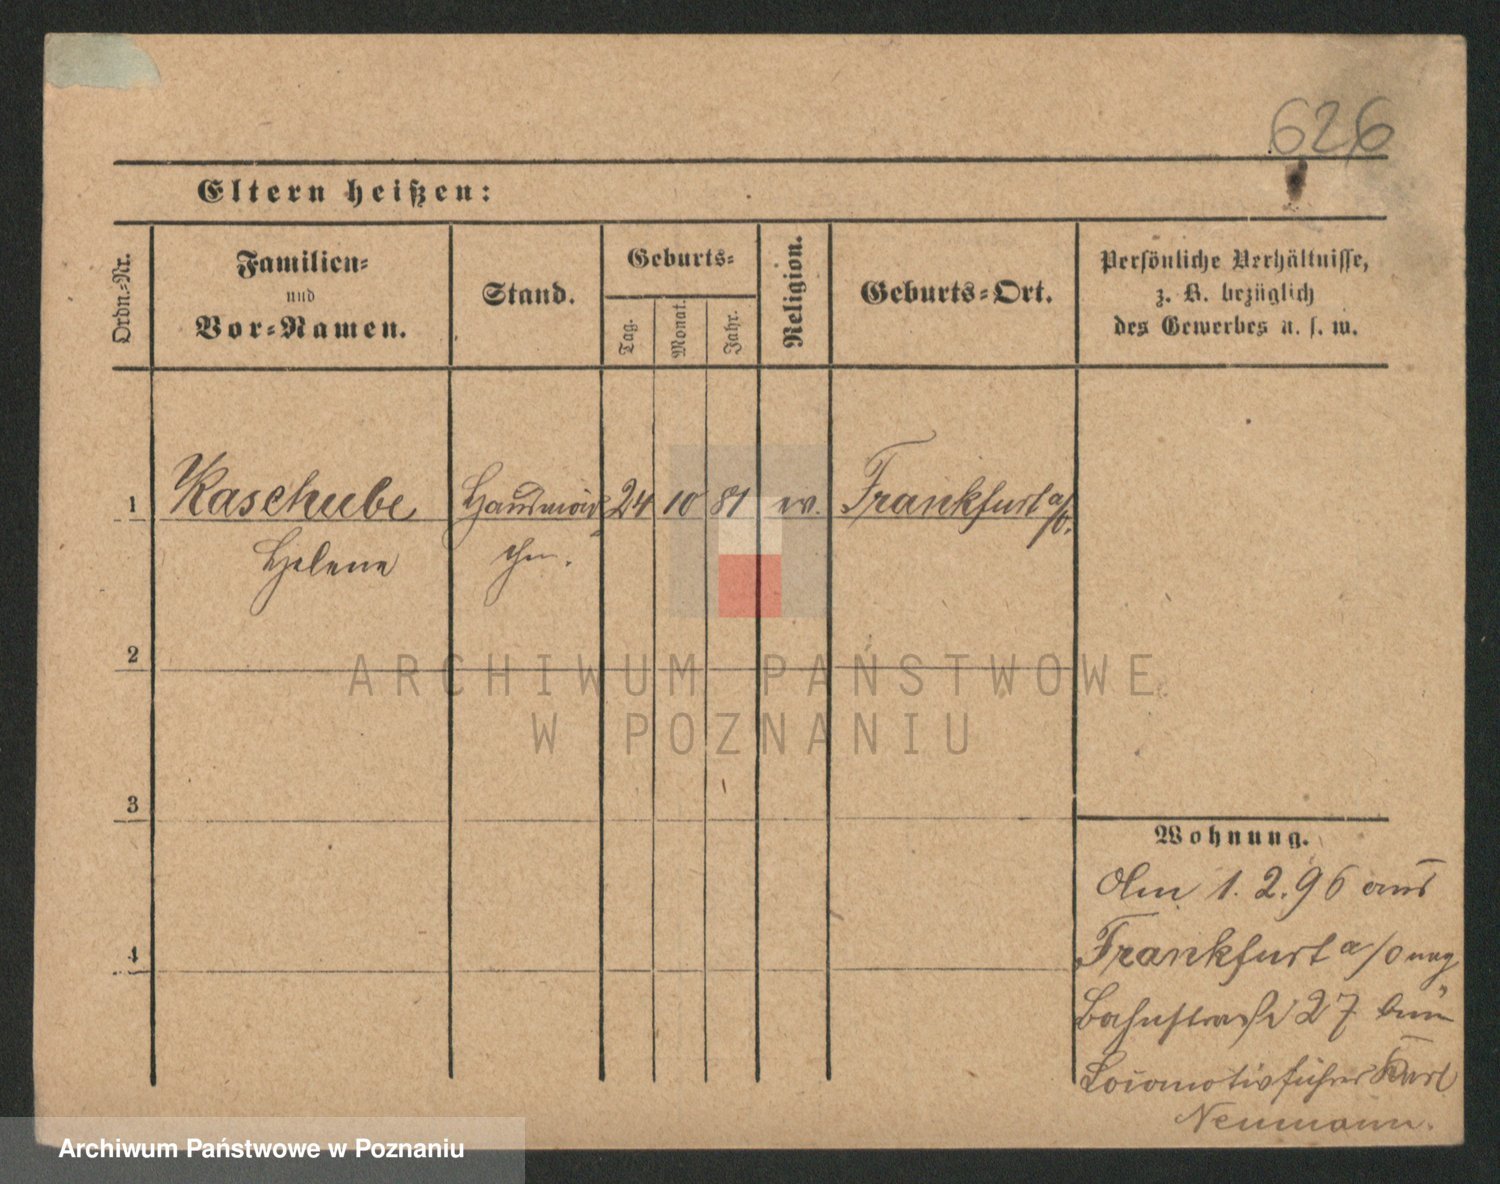 626
Eltern heißen:
Ordn.-Nr.
Familien-
und
Vor-Namen.
Stand.
Geburts-
Tag.
Monat.
Jahr.
Religion.
Geburts-Ort.
Persönliche Verhältnisse,
z. B. bezüglich
des Gewerbes u. s. w.
1 Kaschube Hausmäd- 24 10 81 ev. Frankfurt a/O.
Helene chen.
2
ARCHIWUM PAŃSTWOWE
W POZNANIU
3
Wohnung.
Am 1.2.96 aus
4
Frankfurt a/O nach
Bahnstraße 27 beim
Locomotivführer Karl
Neumann.
Archiwum Państwowe w Poznaniu